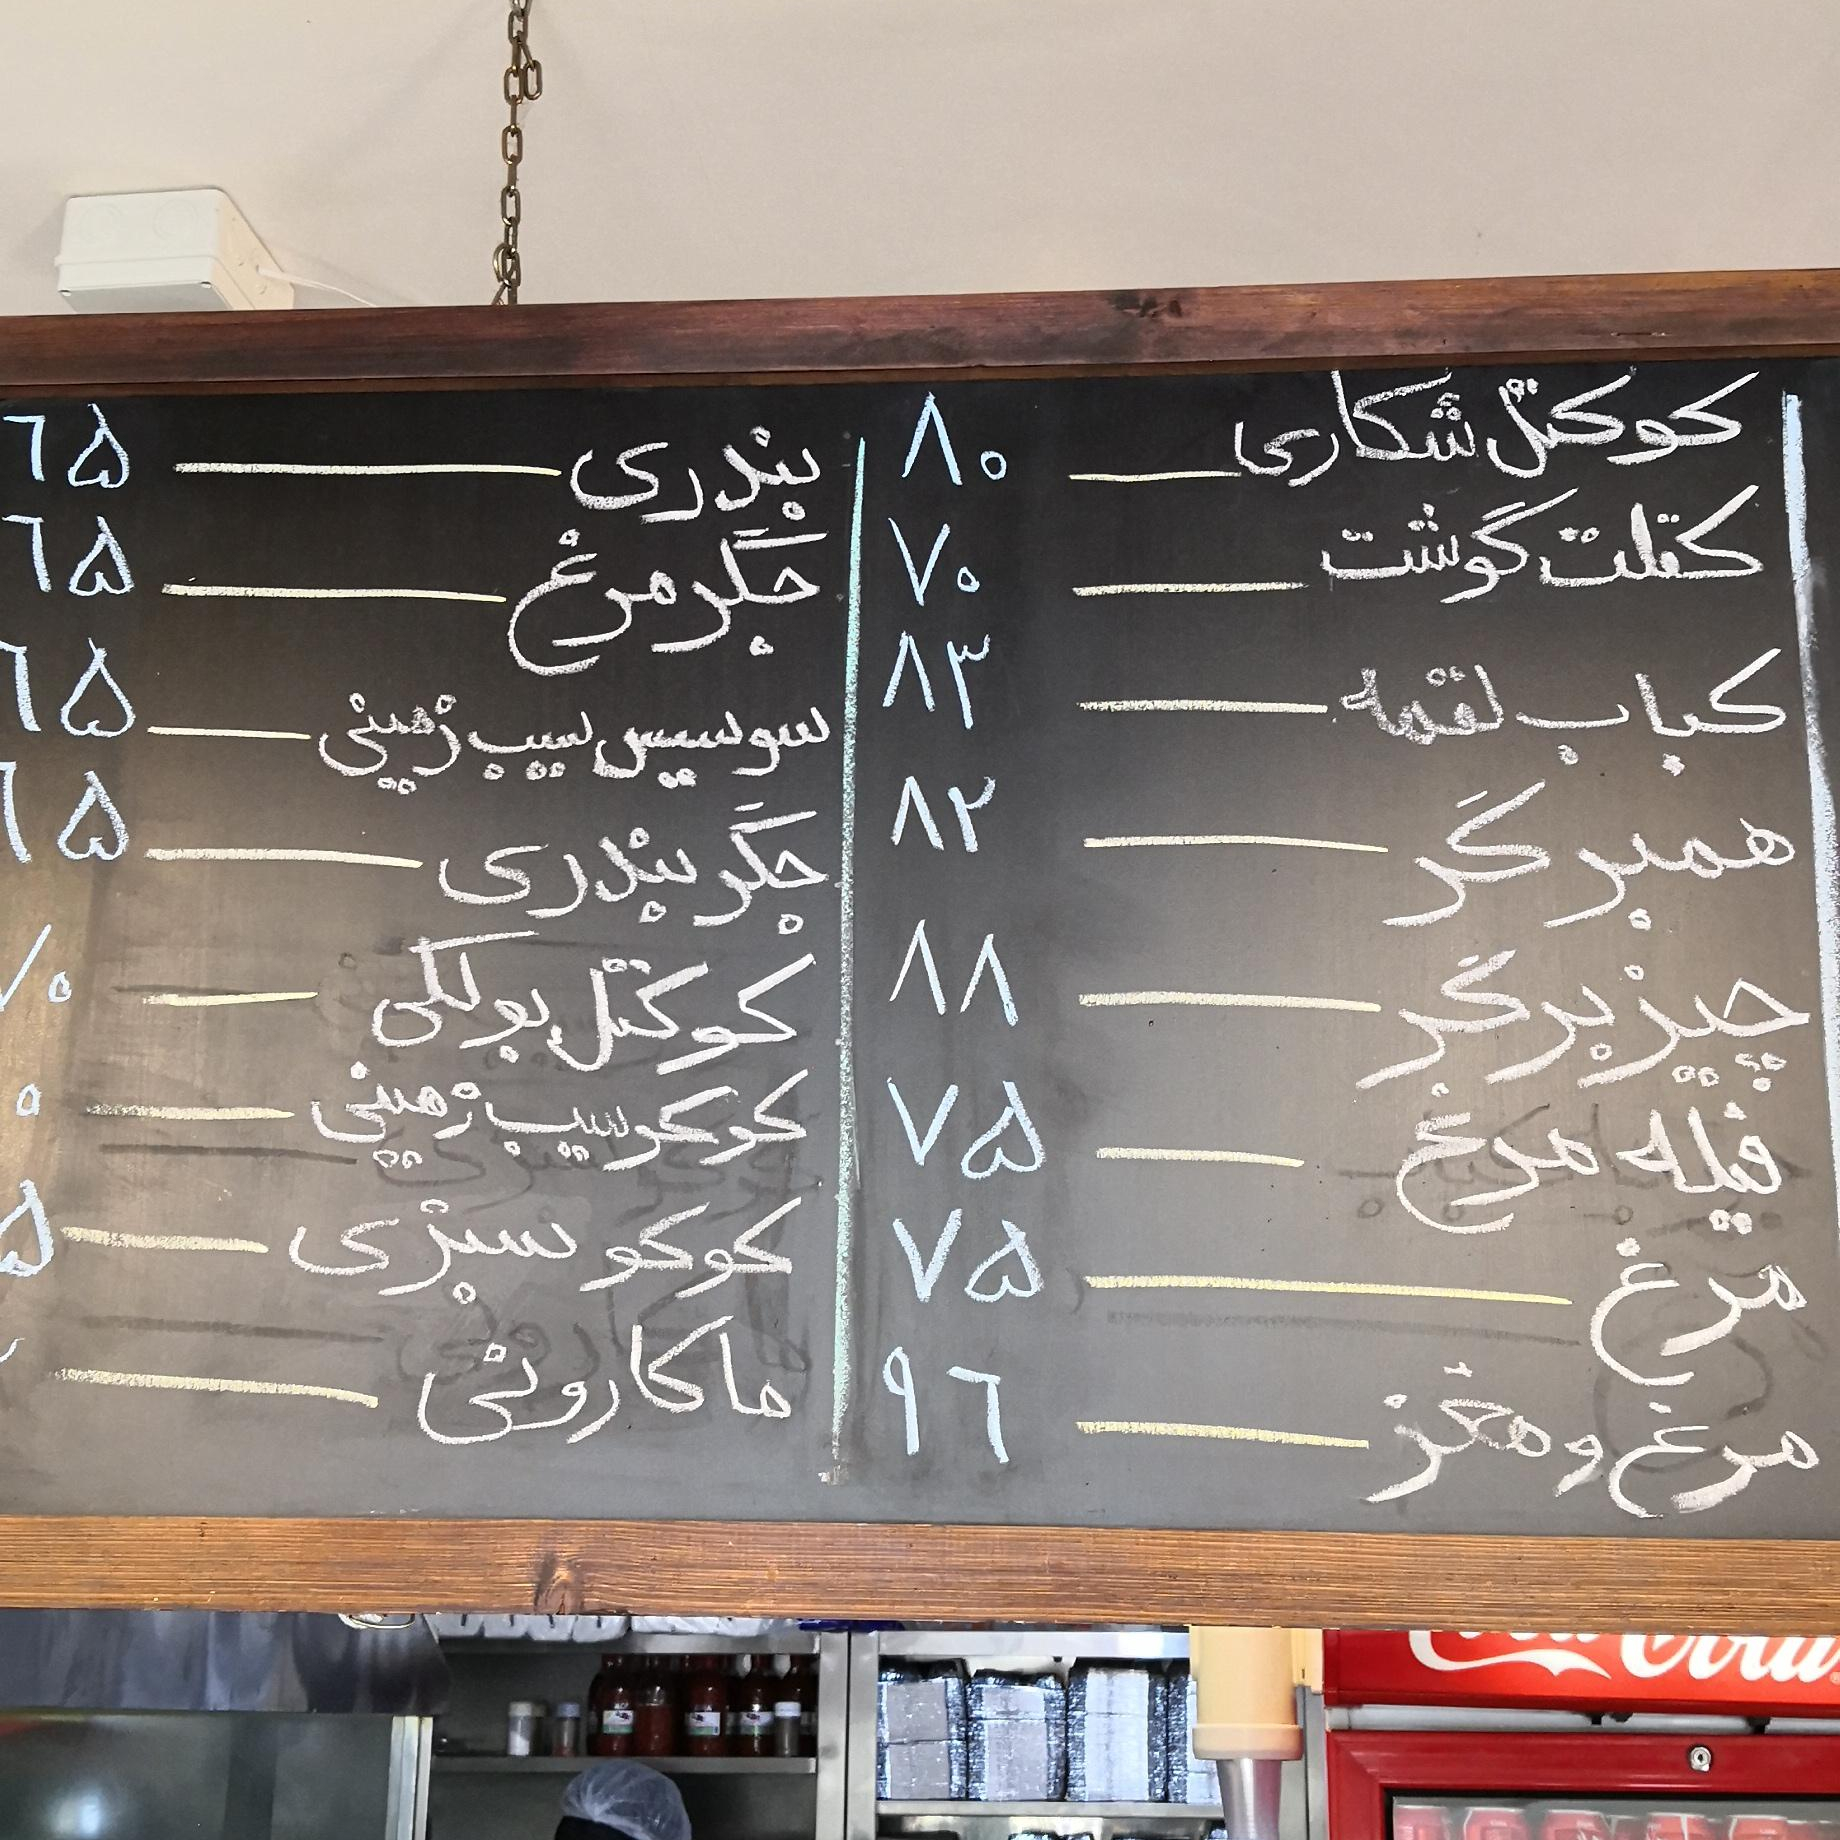 کوکتل شکاری ۸۰
کتلت گوشت ۷۰
کباب لقمه ۸۳
همبرگر ۸۲
چیزبرگر ۸۸
فیله مرغ ۷۵
مرغ ۷۵
مرغ و مغز ۹۶
بندری ۶۵
جگر مرغ ۶۵
سوسیس سیب زمینی ۶۵
جگر بندری ۶۵
کوکتل پولکی ۷۰
کوکو سیب زمینی ۰
کوکو سبزی ۵
ماکارونی